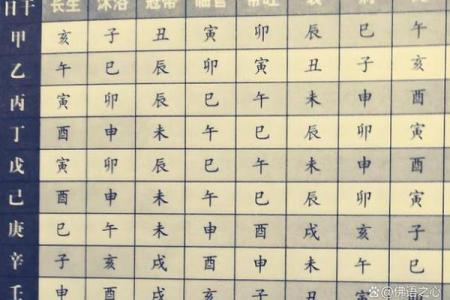 日干 长生 沐浴 冠带 临官 帝旺 衰 病
甲 亥 子 丑 寅 卯 辰 巳 午
乙 午 巳 辰 卯 寅 丑 子 亥
丙 寅 卯 辰 巳 午 未 申 酉
丁 酉 申 未 午 巳 辰 卯 寅
戊 寅 卯 辰 巳 午 未 申 酉
己 酉 申 未 午 巳 辰 卯 寅
庚 巳 午 未 申 酉 戌 亥 子
辛 子 亥 戌 酉 申 未 午 巳
壬 申 酉 戌 亥 子 丑 寅
@佛语之心